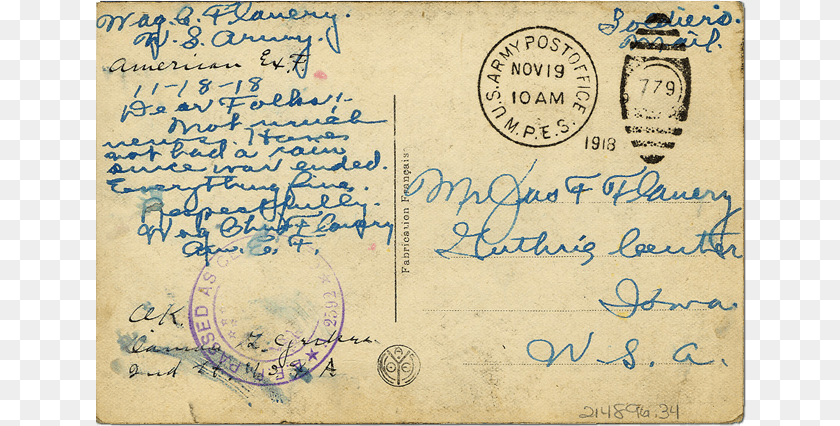 Wag. C. Flanery.
U.S. Army.
American Ex. F
11-18-18
Dear Folks:-
Not much
news. Have
not had a rain
since war ended.
Everything fine.
Respectfully.
Wag Flanery
Am. E. F.
O.K.
2nd Lt. U S A
PASSED AS CENSORED
Soldier's
Mail.
U.S. ARMY POST OFFICE
NOV 19
10 AM
M.P.E.S.
1918
779
Fabrication Française
Mr Jas F Flanery
Guthrie Center
Iowa
U. S. A.
214896.34